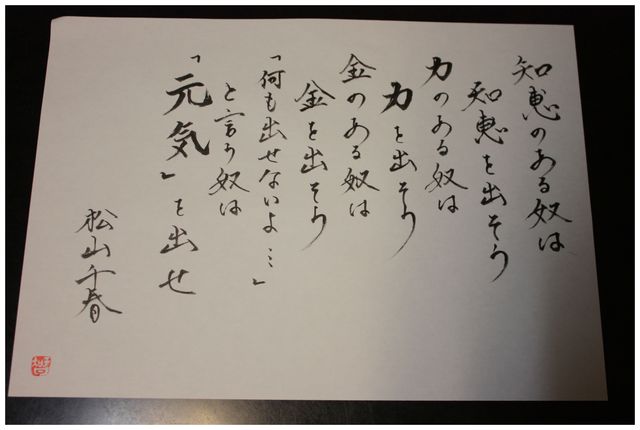 知恵のある奴は
知恵を出そう
力のある奴は
力を出そう
金のある奴は
金を出そう
「何も出せないよ…」
と言う奴は
「元気」を出せ
松山千春